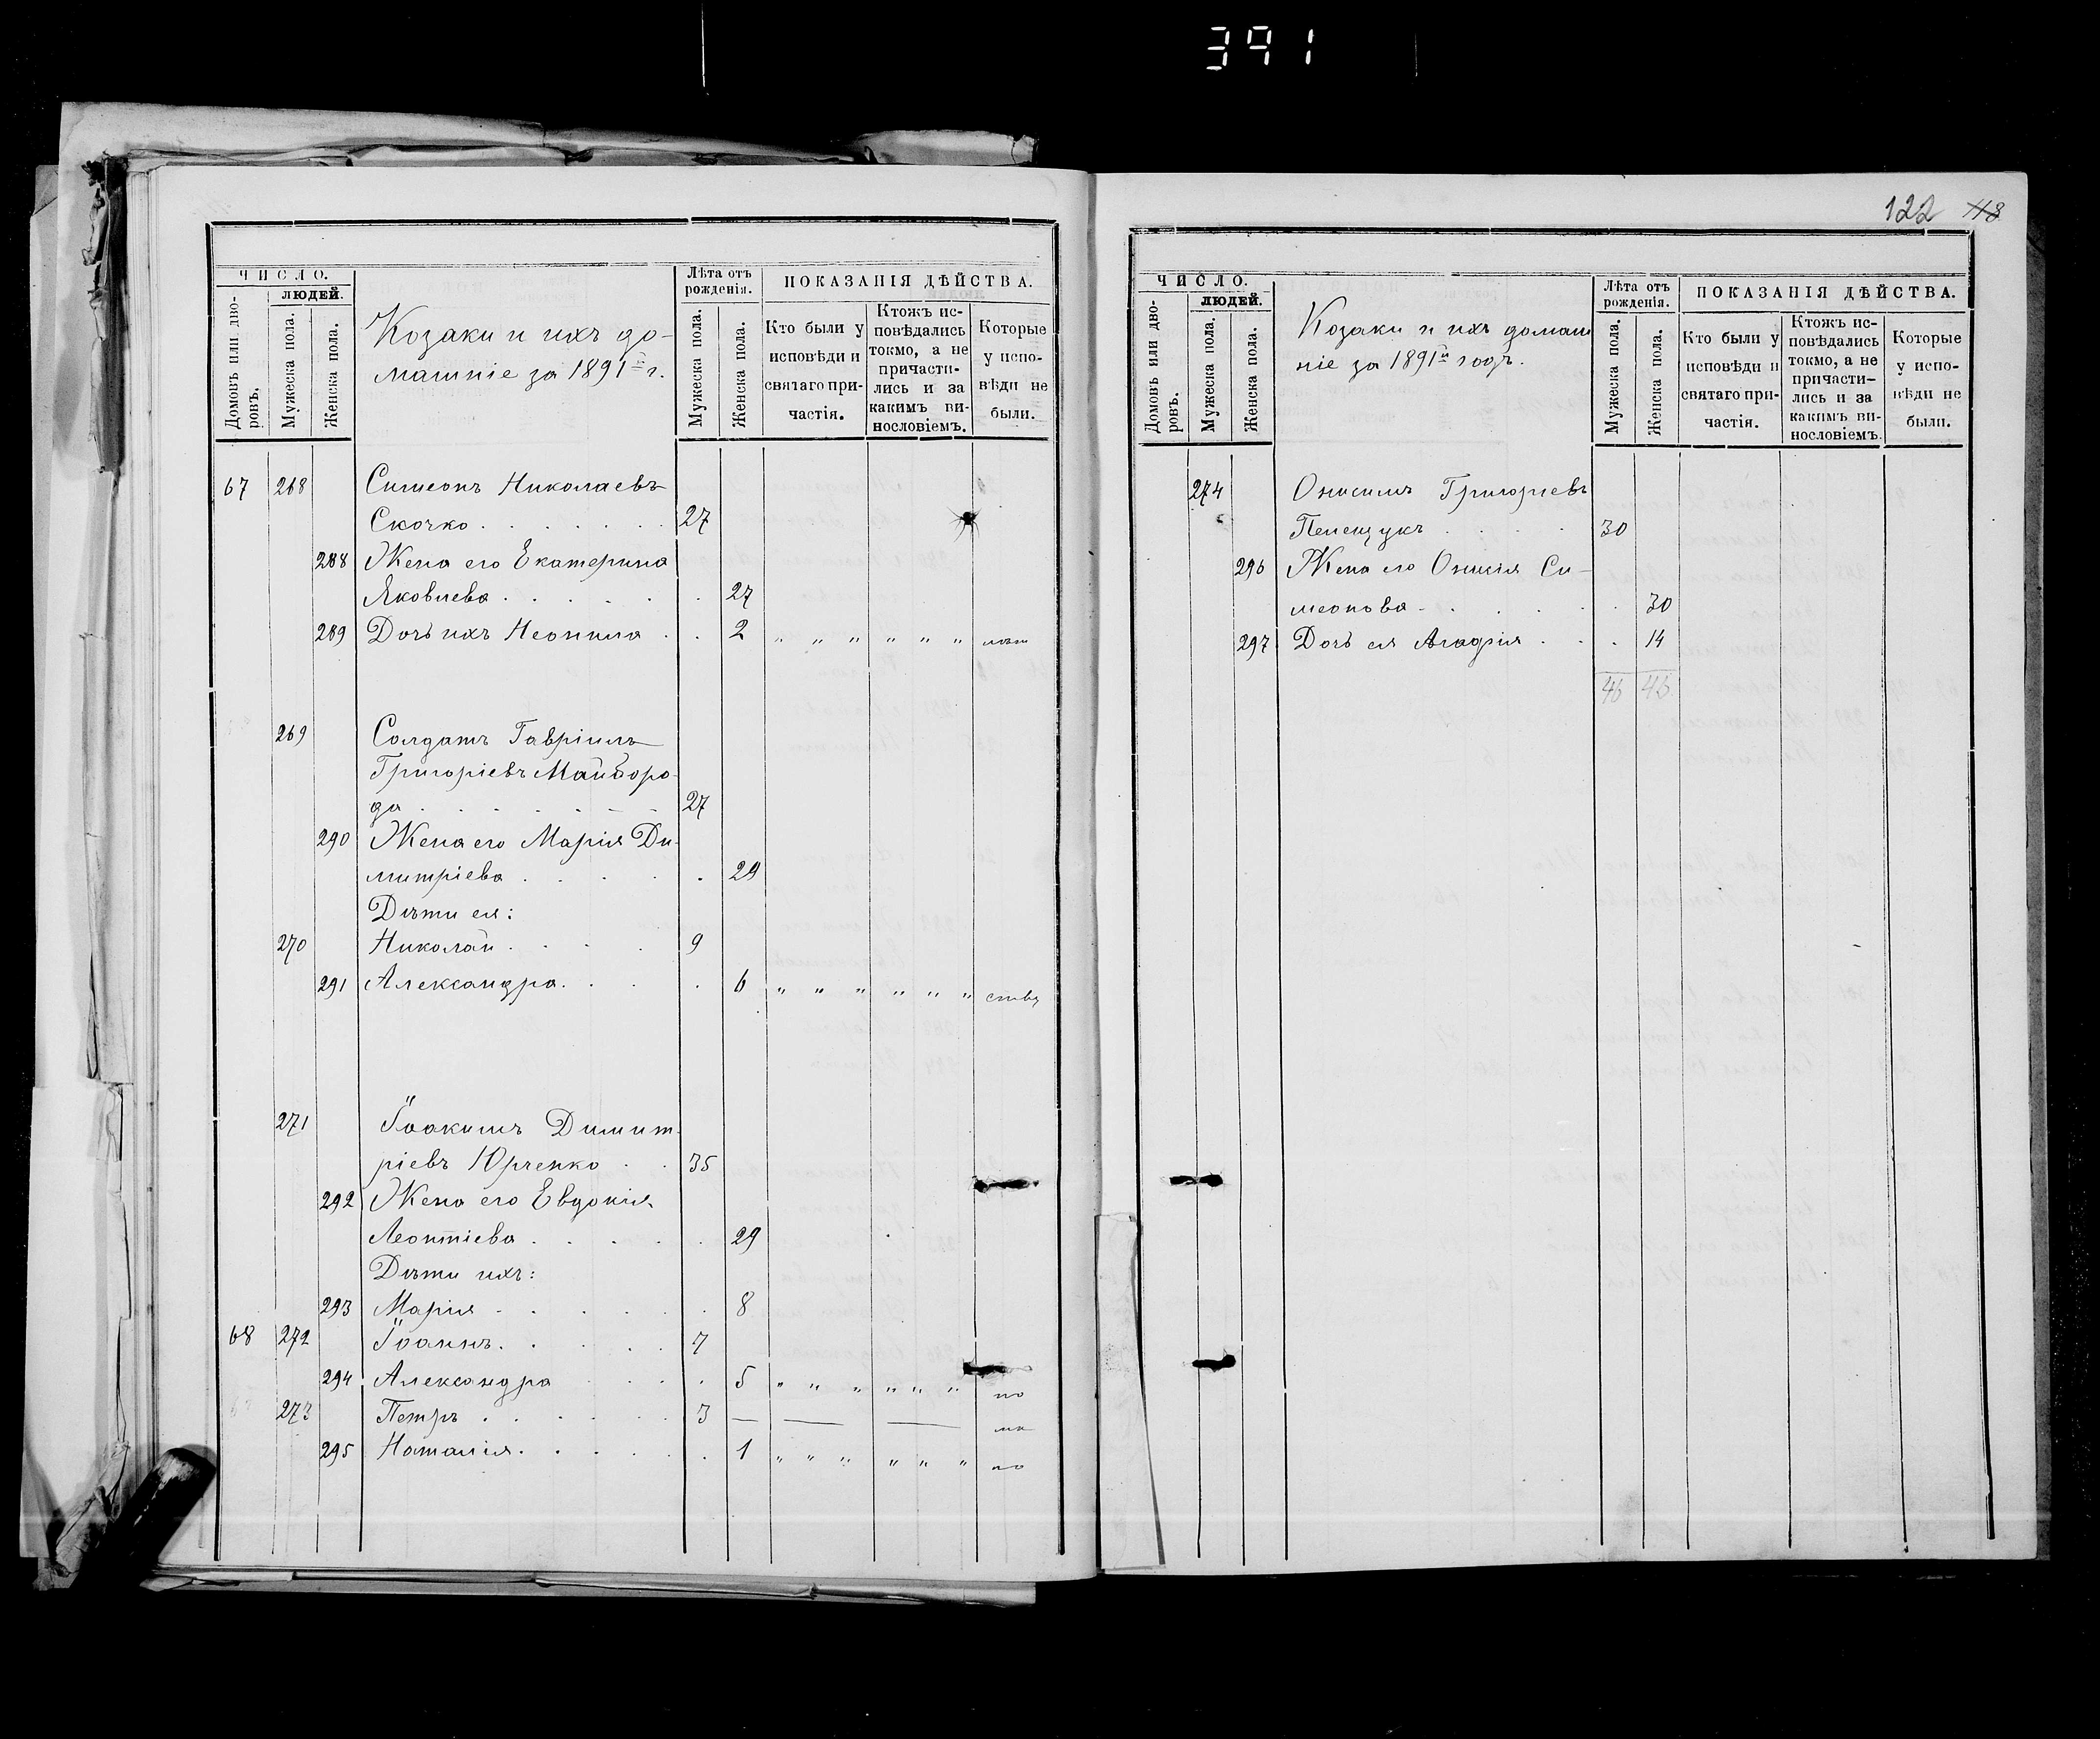 391
ЧИСЛО.
ЛЮДЕЙ.
Домовъ или дво-
ровъ.
Мужеска пола.
Женска пола.
Козаки и ихъ до-
машніе за 1891й г.
Лѣта отъ
рожденія.
Мужеска пола.
Женска пола.
ПОКАЗАНІЯ ДѢЙСТВА.
Кто были у
исповѣди и
святаго при-
частія.
Ктожъ ис-
повѣдались
токмо, а не
причасти-
лись и за
какимъ ви-
нословіемъ.
Которые
у испо-
вѣди не
были.
67 268 Симеонъ Николаевъ
Скочко . . . . . . . 27
288 Жена его Екатерина
Яковлева . . . . . . 27
289 Дочь ихъ Неонила . . 2 " " " " " "
269 Солдатъ Гавріилъ
Григоріевъ Майборо-
да . . . . . . . 27
290 Жена его Марія Ди-
митріева . . . . . 29
Дѣти ея:
270 Николай . . . . 9
291 Александра . . . . 6 " " " " " "
271 Іоакимъ Димит-
ріевъ Юрченко . . 35
292 Жена его Евдокія
Леонтіева . . . . . 29
Дѣти ихъ:
293 Марія . . . . . . 8
68 272 Іоаннъ . . . . . 7
294 Александра . . . . 5 " " " " " "
273 Петръ . . . . . . 3 — — —
295 Наталія . . . . . . 1 " " " " " "
122 118
ЧИСЛО.
ЛЮДЕЙ.
Домовъ или дво-
ровъ.
Мужеска пола.
Женска пола.
Козаки и ихъ домаш
ніе за 1891й годъ.
Лѣта отъ
рожденія.
Мужеска пола.
Женска пола.
ПОКАЗАНІЯ ДѢЙСТВА.
Кто были у
исповѣди и
святаго при-
частія.
Ктожъ ис-
повѣдались
токмо, а не
причасти-
лись и за
какимъ ви-
нословіемъ.
Которые
у испо-
вѣди не
были.
274 Онисимъ Григоріевъ
. . . . 30
296 Жена его Си-
меонова . . . . . 30
297 Дочь ея Агафія . . . 14
46 46